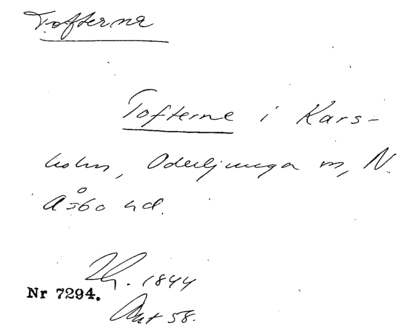 Tofterna
Tofterne i Kars-
holm, Oderljunga sn, N.
Åsbo hd.
Lh. 1844
Nr 7294.
Akt 58.